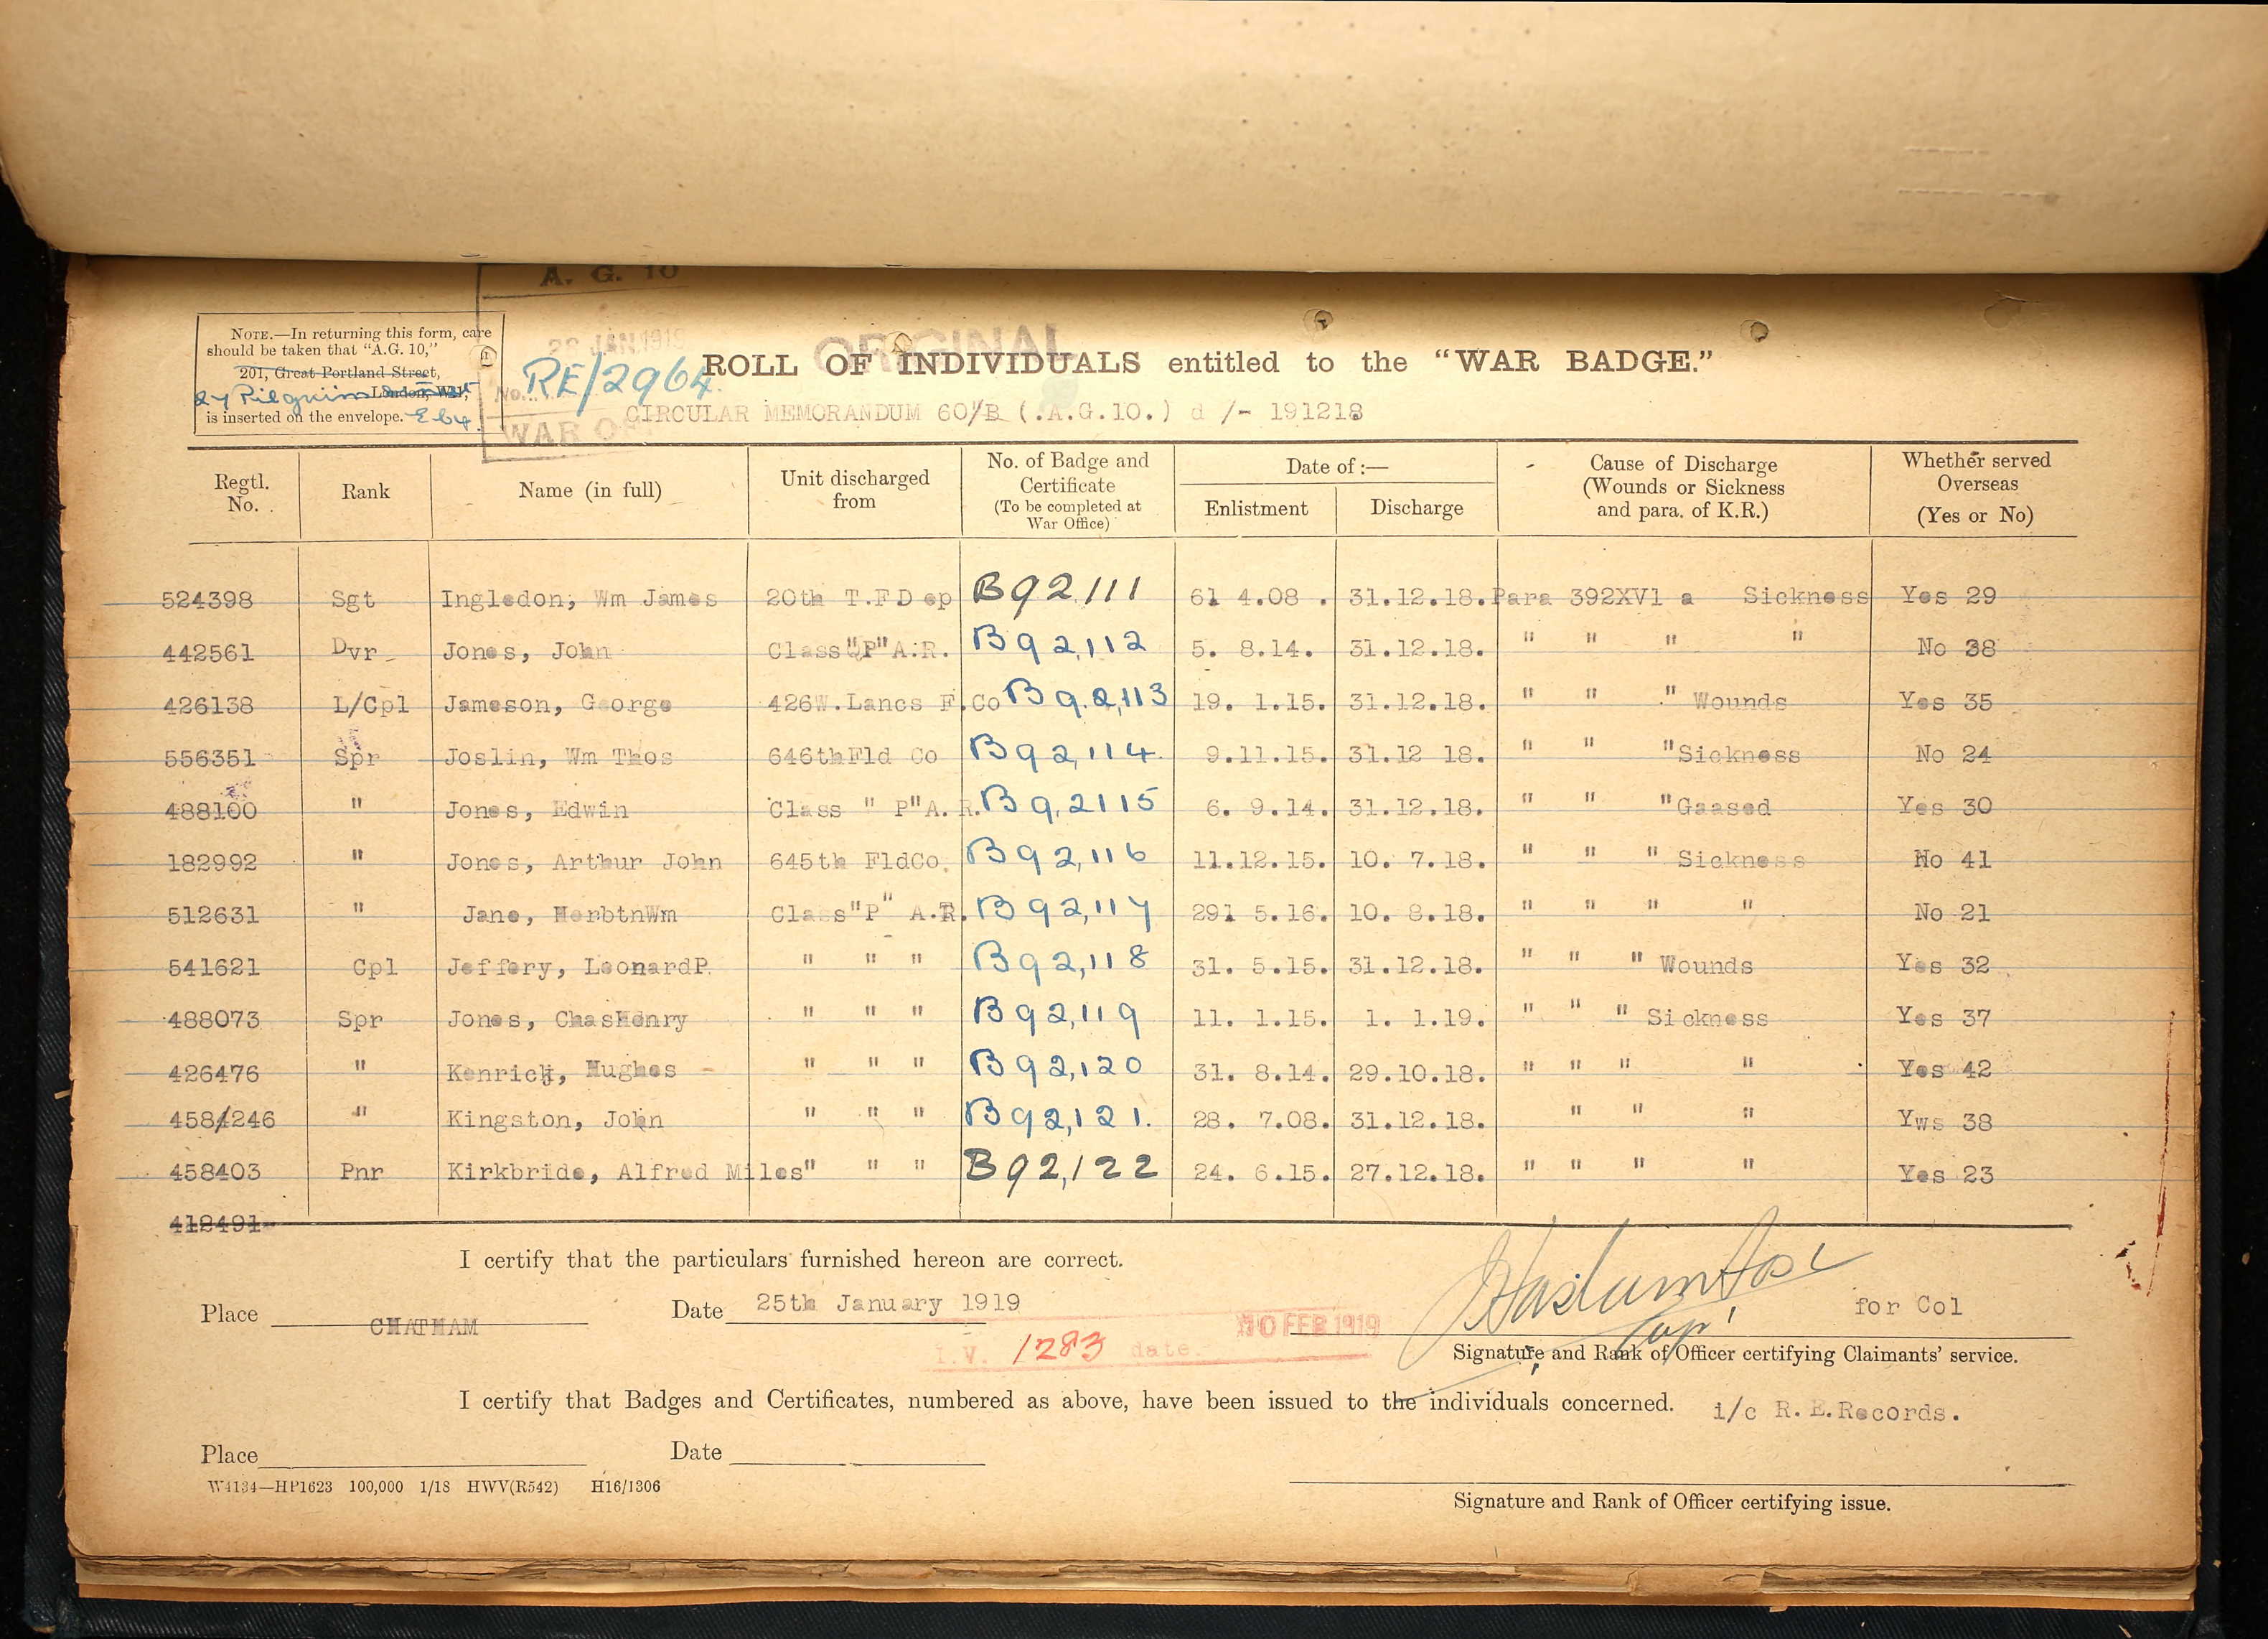 A. G. 10
NOTE.—In returning this form, care
should be taken that "A.G. 10,"
201, Great Portland Street,
27 Pilgrim London, W.1,
is inserted on the envelope. E C 4.
28 JAN 1919
ORIGINAL
No. RE/2964
WAR OF
ROLL OF INDIVIDUALS entitled to the "WAR BADGE."
CIRCULAR MEMORANDUM 60/B (.A.G.10.) d /- 191218
Regtl. No. Rank Name (in full) Unit discharged from No. of Badge and Certificate (To be completed at War Office) Date of :— Enlistment Discharge Cause of Discharge (Wounds or Sickness and para. of K.R.) Whether served Overseas (Yes or No)
524398 Sgt Ingledon, Wm James 20th T.F Dep B92,111 61 4.08 . 31.12.18. Para 392XV1 a Sickness Yes 29
442561 Dvr Jones, John Class "P" A.R. B92,112 5. 8.14. 31.12.18. " " " " No 38
426138 L/Cpl Jameson, George 426W.Lancs F.Co B92,113 19. 1.15. 31.12.18. " " " Wounds Yes 35
556351 Spr Joslin, Wm Thos 646thFld Co B92,114. 9.11.15. 31.12 18. " " "Sickness No 24
488100 " Jones, Edwin Class " P"A. R. B9,2115 6. 9.14. 31.12.18. " " "Gaased Yes 30
182992 " Jones, Arthur John 645th FldCo. B92,116 11.12.15. 10. 7.18. " " " Sickness No 41
512631 " Jane, HerbtnWm Class"P" A.R. B92,117 291 5.16. 10. 8.18. " " " " No 21
541621 Cpl Jeffery, LeonardP. " " " B92,118 31. 5.15. 31.12.18. " " " Wounds Yes 32
488073 Spr Jones, ChasHenry " " " B92,119 11. 1.15. 1. 1.19. " " " Sickness Yes 37
426476 " Kenrick, Hughes " " " B92,120 31. 8.14. 29.10.18. " " " " Yes 42
458/246 " Kingston, John " " " B92,121. 28. 7.08. 31.12.18. " " " Yws 38
458403 Pnr Kirkbride, Alfred Miles" " " B92,122 24. 6.15. 27.12.18. " " " " Yes 23
412491
I certify that the particulars furnished hereon are correct.
Place CHATHAM Date 25th January 1919
I.V. 1283 date 10 FEB 1919
for Col
Signature and Rank of Officer certifying Claimants' service.
I certify that Badges and Certificates, numbered as above, have been issued to the individuals concerned. i/c R. E.Records.
Place Date
W4134—HP1623 100,000 1/18 HWV(R542) H16/1306
Signature and Rank of Officer certifying issue.